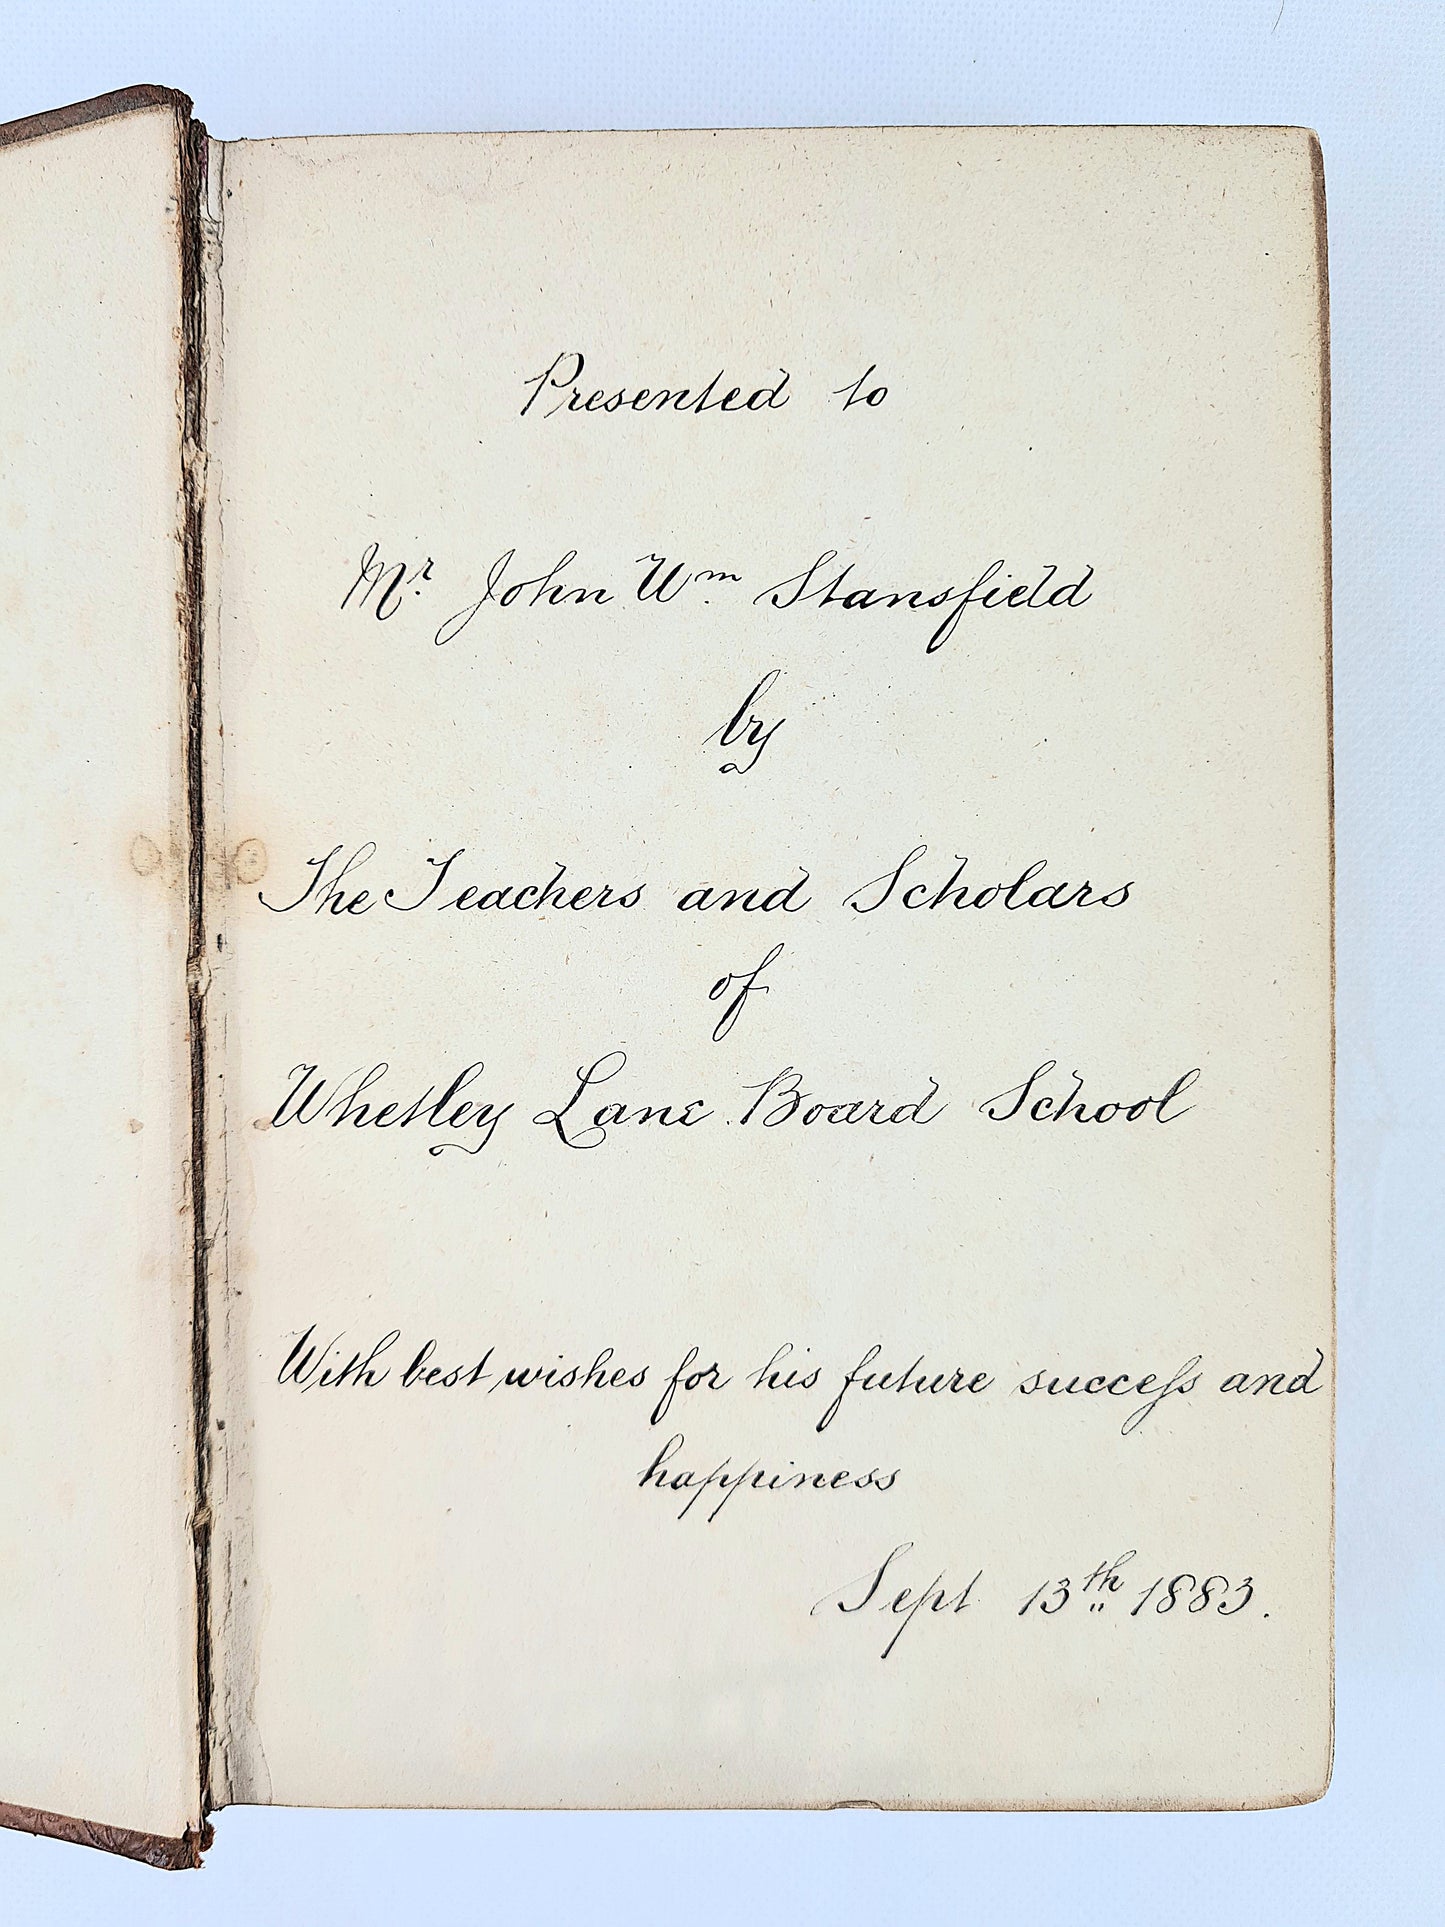 Presented to
Mr. John Wm. Stansfield
by
The Teachers and Scholars
of
Whetley Lane Board School
With best wishes for his future succeſs and
happiness
Sept 13th 1883.